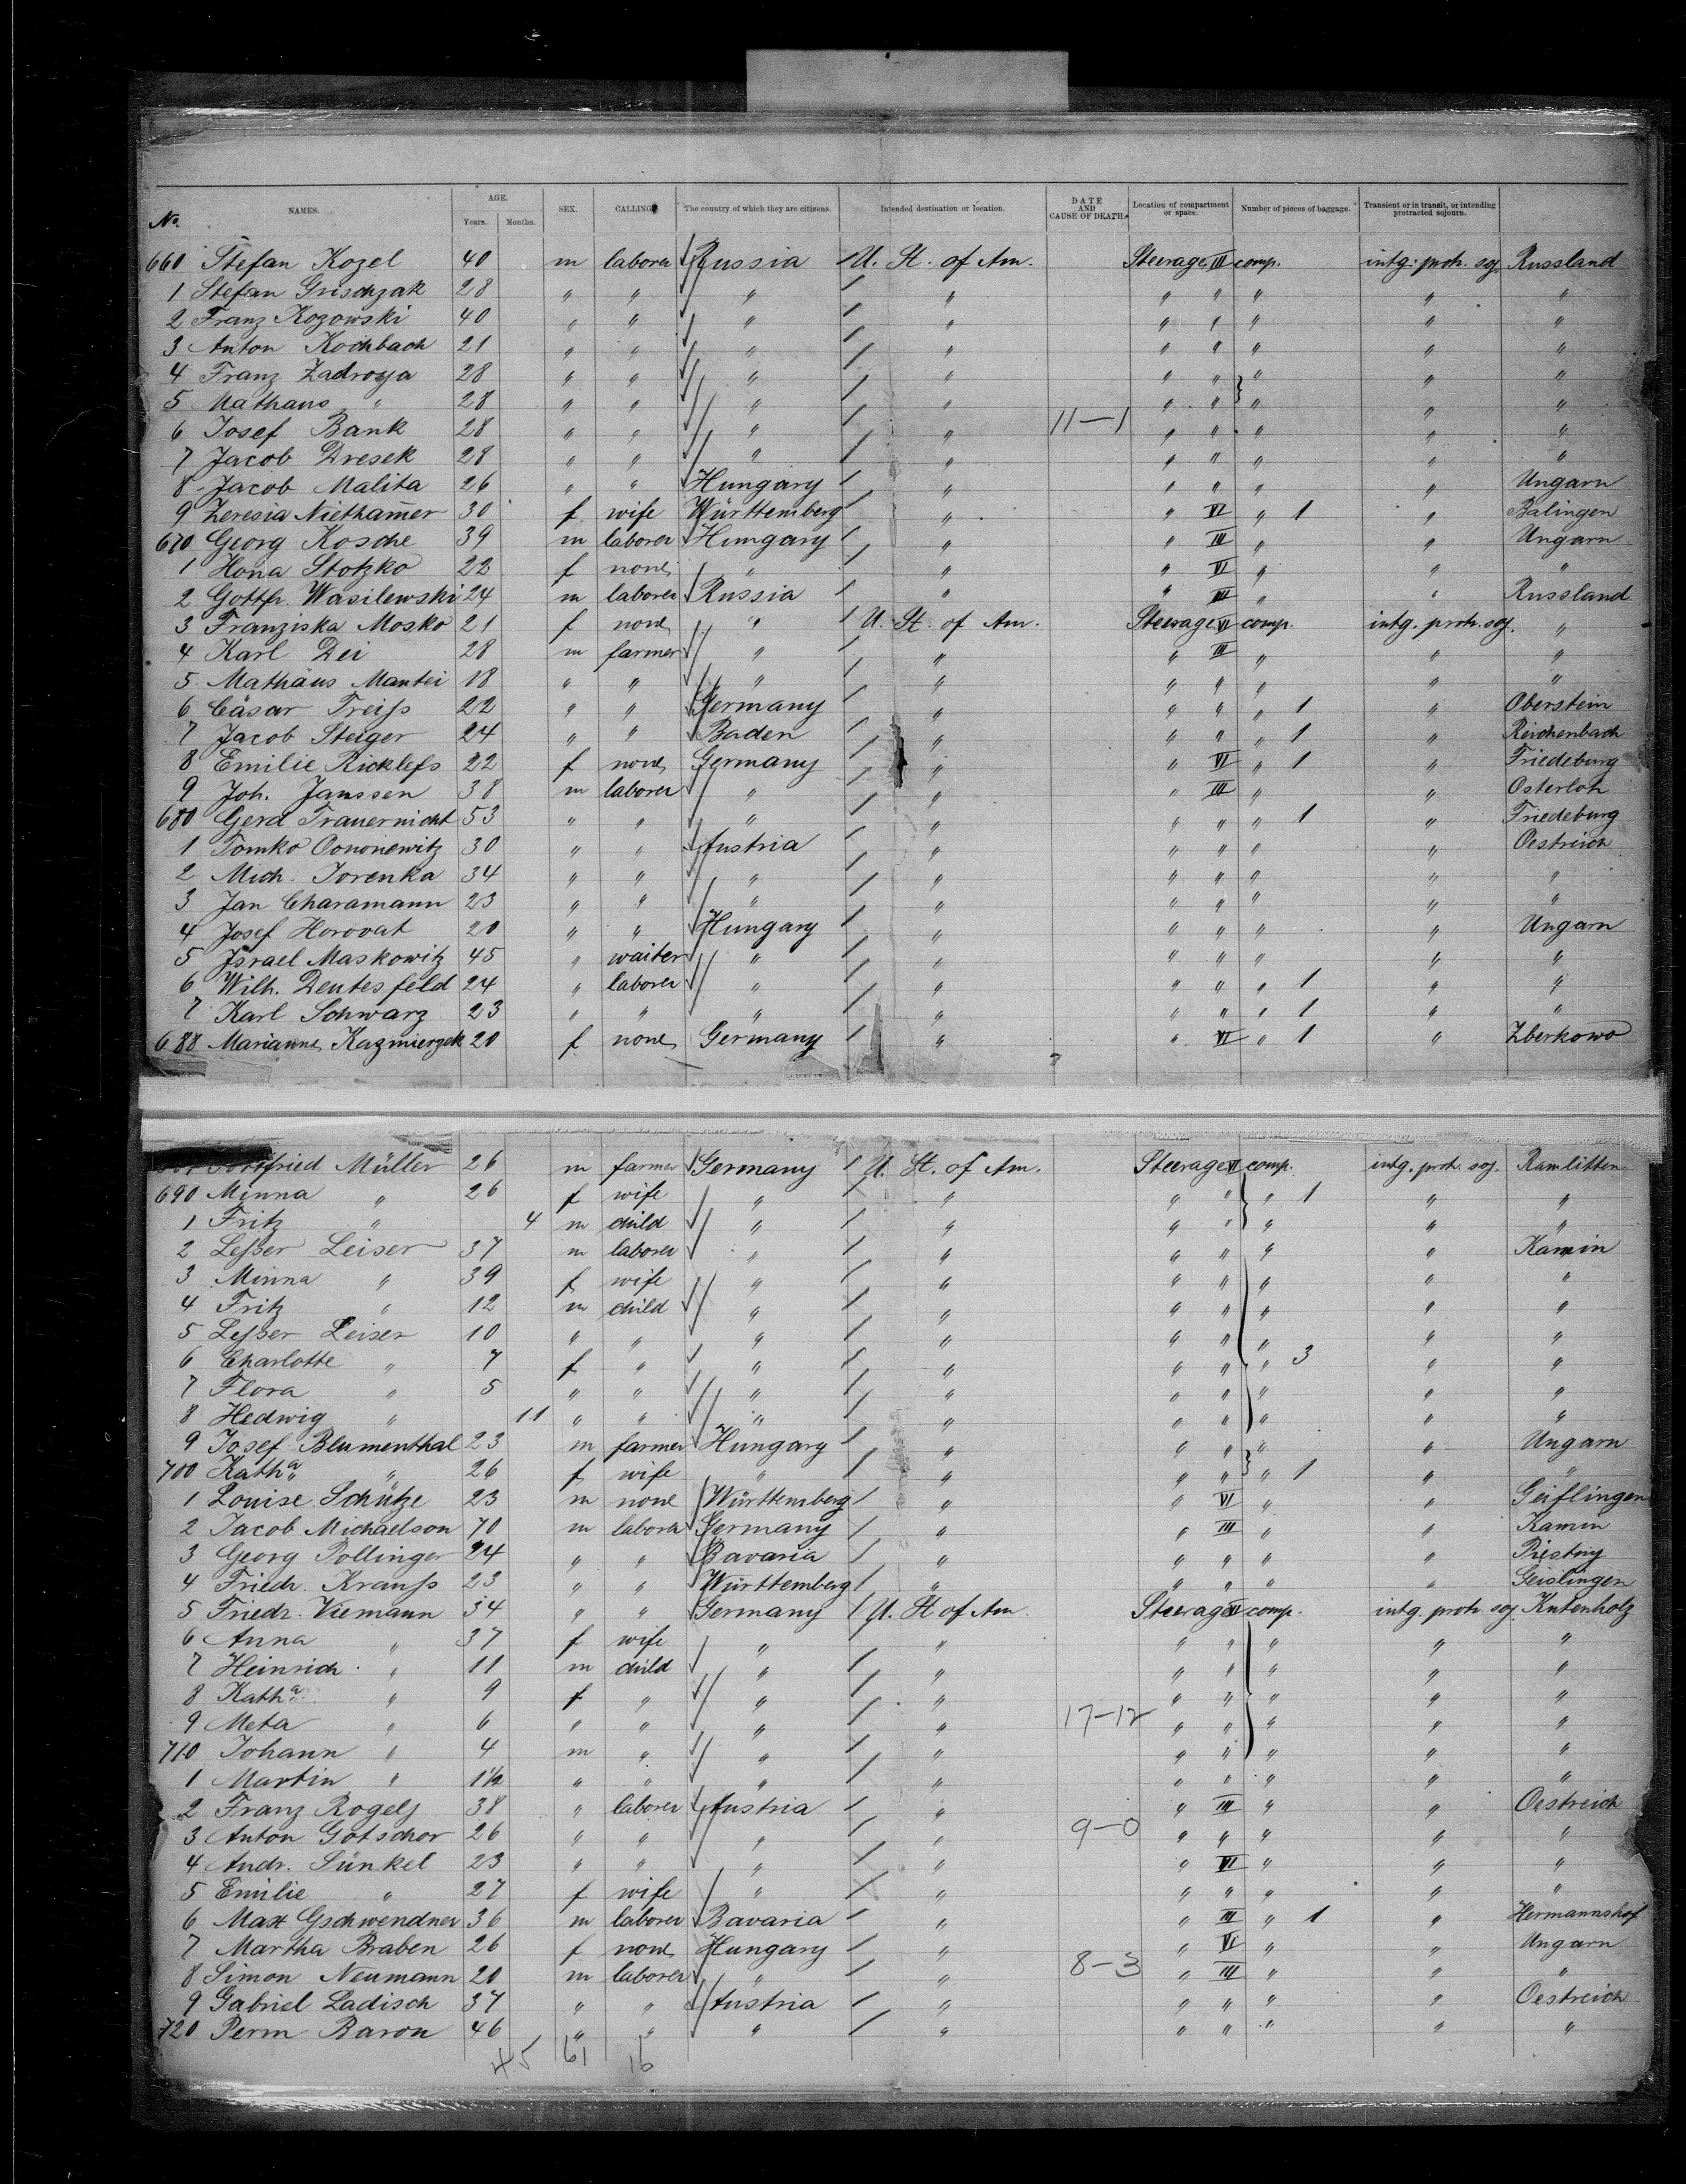 No. NAMES. AGE. Years. Months. SEX. CALLING The country of which they are citizens. Intended destination or location. DATE AND CAUSE OF DEATH. Location of compartment or space. Number of pieces of baggage. Transient or in transit, or intending protracted sojourn.
660 Stefan Kozel 40 m laborer Russia U. St. of Am. Steerage III comp. intg. protr. soj. Russland
1 Stefan Grischzak 28 " " " " " " " " "
2 Franz Kozowski 40 " " " " " " " " "
3 Anton Kochbach 21 " " " " " " " " "
4 Franz Zadroya 28 " " " " " " " " "
5 Mathaus " 28 " " " " " " " " "
6 Josef Bank 28 " " " " 11–1 " " " " "
7 Jacob Dresek 28 " " " " " " " " "
8 Jacob Malita 26 " " Hungary " " " " " Ungarn
9 Zeresia Niethamer 30 f wife Württemberg " " VI " 1 " Balingen
670 Georg Kosche 39 m laborer Hungary " " III " " Ungarn
1 Hona Stotzko 22 f none " " " VI " " "
2 Gottfr. Wasilewski 24 m laborer Russia " " III " " Russland
3 Franziska Mosko 21 f none " U. St. of Am. Steerage VI comp. intg. protr. soj. "
4 Karl Dei 28 m farmer " " " III " " "
5 Mathäus Mantei 18 " " " " " " " " "
6 Cäsar Treiss 22 " " Germany " " " " 1 " Oberstein
7 Jacob Steiger 24 " " Baden " " " " 1 " Reichenbach
8 Emilie Ricklefs 22 f none Germany " " VI " 1 " Friedeburg
9 Joh. Janssen 38 m laborer " " " III " " Osterloh
680 Gerd Trauernicht 53 " " " " " " " 1 " Friedeburg
1 Tomko Oononewitz 30 " " Austria " " " " " Oestreich
2 Mich. Jorenka 34 " " " " " " " " "
3 Jan Charamann 23 " " " " " " " " "
4 Josef Horovat 20 " " Hungary " " " " " Ungarn
5 Israel Maskowitz 45 " waiter " " " " " " "
6 Wilh. Deutesfeld 24 " laborer " " " " " 1 " "
7 Karl Schwarz 23 " " " " " " " 1 " "
688 Marianne Kazmierzek 20 f none Germany " " VI " 1 " Zberkowo
Müller 26 m farmer Germany U. St. of Am. Steerage VI comp. intg. protr. soj. Ramlitten
690 Minna " 26 f wife " " " " " 1 " "
1 Fritz " 4 m child " " " " " " "
2 Lesser Leiser 37 m laborer " " " " " " Kamin
3 Minna " 39 f wife " " " " " " "
4 Fritz " 12 m child " " " " " " "
5 Lesser Leiser 10 " " " " " " " " "
6 Charlotte " 7 f " " " " " " 3 " "
7 Flora " 5 " " " " " " " " "
8 Hedwig " 11 " " " " " " " " "
9 Josef Blumenthal 23 m farmer Hungary " " " " " Ungarn
700 Katha " 26 f wife " " " " " 1 " "
1 Louise Schütze 23 m none Württemberg " " VI " " Geiflingen
2 Jacob Michaelson 70 m laborer Germany " " III " " Kamin
3 Georg Pollinger 24 " " Bavaria " " " " " Piesting
4 Friedr. Krauss 23 " " Württemberg " " " " " Geislingen
5 Friedr. Viemann 34 " " Germany U. St of Am. Steerage comp. intg. protr. soj. Kutenholz
6 Anna " 37 f wife " " " " " " "
7 Heinrich " 11 m child " " " " " " "
8 Katha " 9 f " " " " " " " "
9 Meta " 6 " " " " 17–12 " " " " "
710 Johann " 4 m " " " " " " " "
1 Martin " 1½ " " " " " " " " "
2 Franz Rogelj 38 " laborer Austria " " III " " Oestreich
3 Anton Gotschor 26 " " " " 9–0 " " " " "
4 Andr. Sünkel 23 " " " " " VI " " "
5 Emilie " 27 f wife " " " " " " "
6 Max Gschwendner 36 m laborer Bavaria " " III " 1 " Hermannshof
7 Martha Braben 26 f none Hungary " " VI " " Ungarn
8 Simon Neumann 20 m laborer " " 8–3 " III " " "
9 Gabriel Ladisch 37 " " Austria " " " " " Oestreich
720 Perm Baron 46 " " " " " " " " "
45 61 16